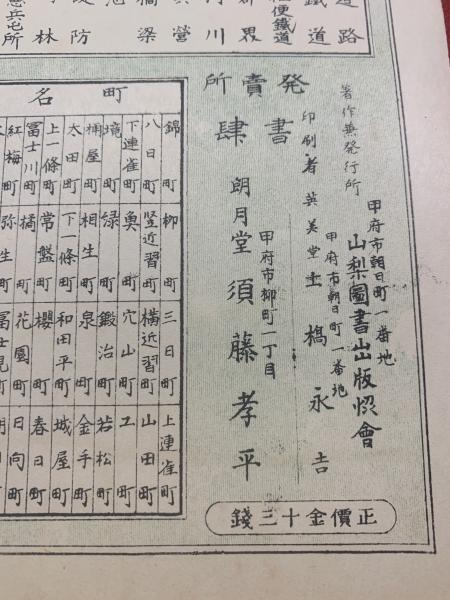 道路
鐵道
便鐵道
界
川
營
橋梁
池
防
林
兵屯所
著作兼發行所
甲府市朝日町一番地
山梨圖書出版協會
印刷者英美堂土橋永吉
甲府市朝日町一番地
発賣所
書肆
朗月堂須藤孝平
甲府市柳町一丁目
正價金十三錢
町名
錦町
八日町
下連雀町
境町
桶屋町
太田町
上一條町
冨士川町
紅梅町
柳町
竪近習町
魚町
緑町
相生町
下一條町
常盤町
橘町
弥生町
三日町
横近習町
穴山町
鍛治町
泉町
和田平町
櫻町
花園町
冨士見町
上連雀町
山田町
工町
若松町
金手町
城屋町
春日町
日向町